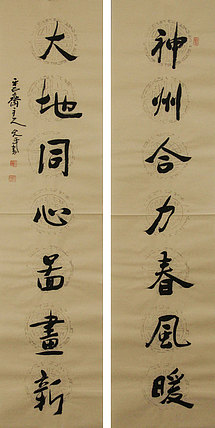 神州合力春風暖
大地同心畫新